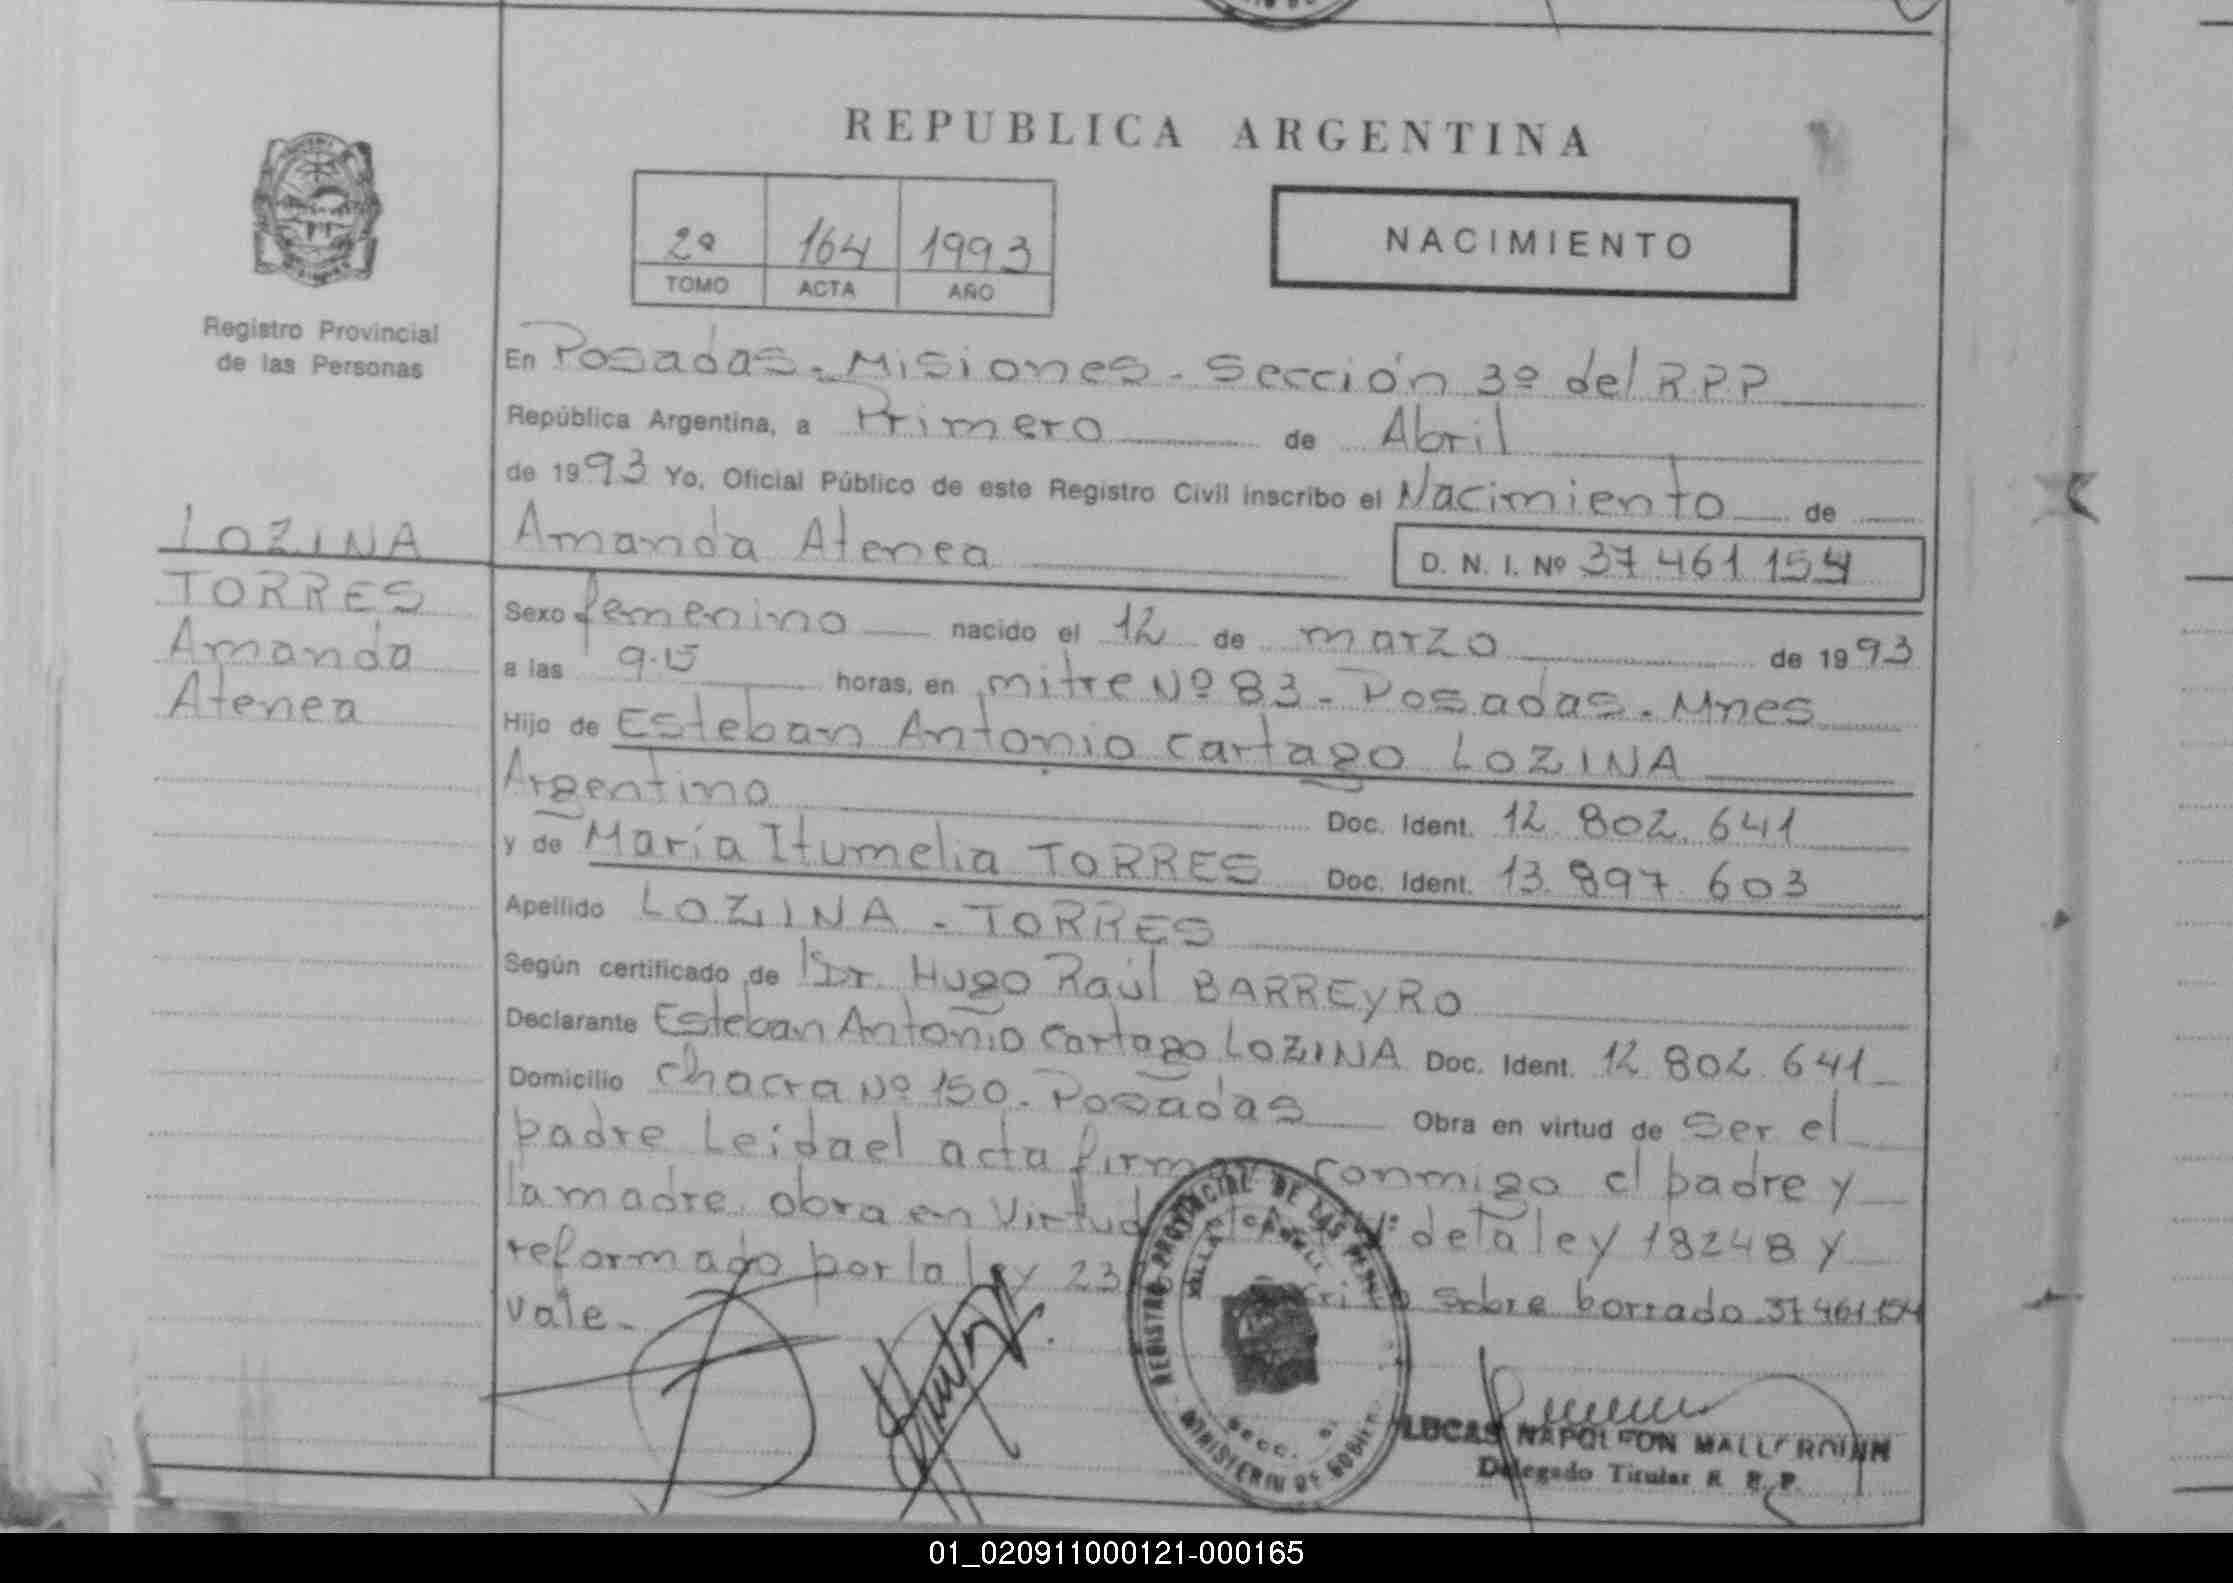 REPUBLICA ARGENTINA
2º 164 1993
TOMO ACTA AÑO
NACIMIENTO
Registro Provincial
de las Personas
En Posadas. Misiones. Sección 3º del R.P.P
República Argentina, a Primero de Abril
de 1993 Yo, Oficial Público de este Registro Civil inscribo el Nacimiento de
LOZINA
TORRES
Amanda
Atenea
Amanda Atenea D. N. I. Nº 37 461 154
Sexo femenino nacido el 12 de marzo de 1993
a las 9.15 horas, en mitre Nº 83 - Posadas. Mnes
Hijo de Esteban Antonio Cartago LOZINA
Argentino Doc. Ident. 12 802. 641
y de María Itumelia TORRES Doc. Ident. 13. 897. 603
Apellido LOZINA - TORRES
Según certificado de Dr. Hugo Raúl BARREYRO
Declarante Esteban Antonio Cartago LOZINA Doc. Ident. 12 802 641
Domicilio Chacra Nº 150. Posadas Obra en virtud de Ser el
padre Leida el acta conmigo el padre y
la madre. obra en Virtud de la ley 18248 y
reformado por la ley 23 sobre borrado 37 461 154
Vale.
REGISTRO PROVINCIAL DE LAS
MINISTERIO DE GOBIER
SECC.
LUCAS NAPOLEON
Delegado Titular R. P. P.
01_020911000121-000165